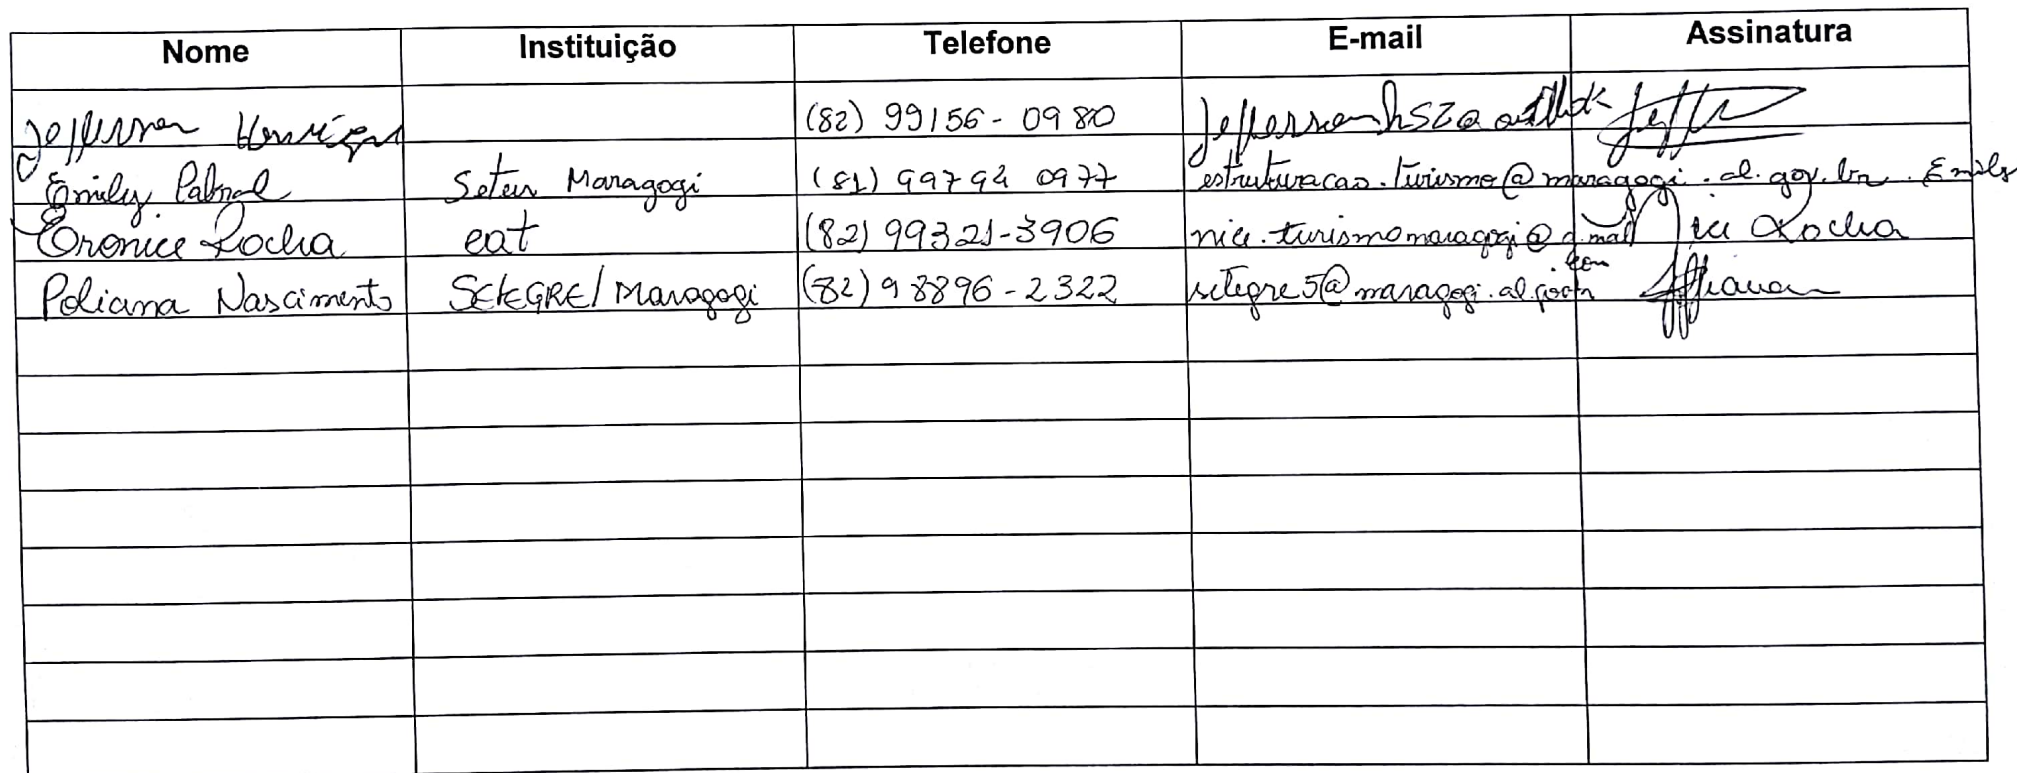 Nome Instituição Telefone E-mail Assinatura
Jefferson Henrique (82) 99156-0980
Emily Cabral Setur Maragogi (81) 99794 0977 estruturacao.turismo@maragogi.al.gov.br Emily
Eronice Rocha eat (82) 99321-3906 nice.turismomaragogi@gmail Nice Rocha
.com
Poliana Nascimento SETEGRE/Maragogi (82) 98896-2322 setegre5@maragogi.al.gov.br